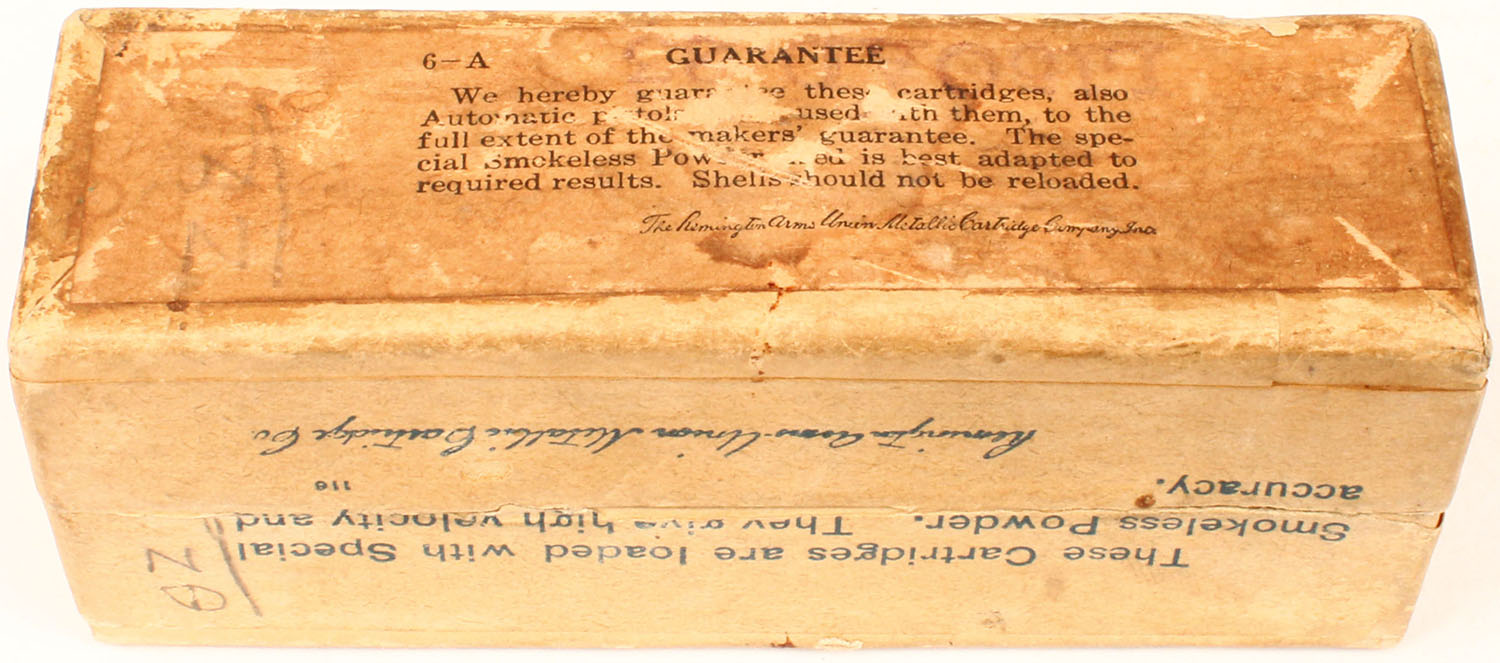 6-A GUARANTEE
We hereby these cartridges, also
Automatic used them, to the
full extent of the makers' guarantee. The spe-
cial Smokeless is best adapted to
required results. Shells should not be reloaded.
The Remington Arms Union Metallic Cartridge Company, Inc.
These Cartridges are loaded with Special
Smokeless Powder. They give high velocity and
accuracy.
116
Remington Arms-Union Metallic Cartridge Co